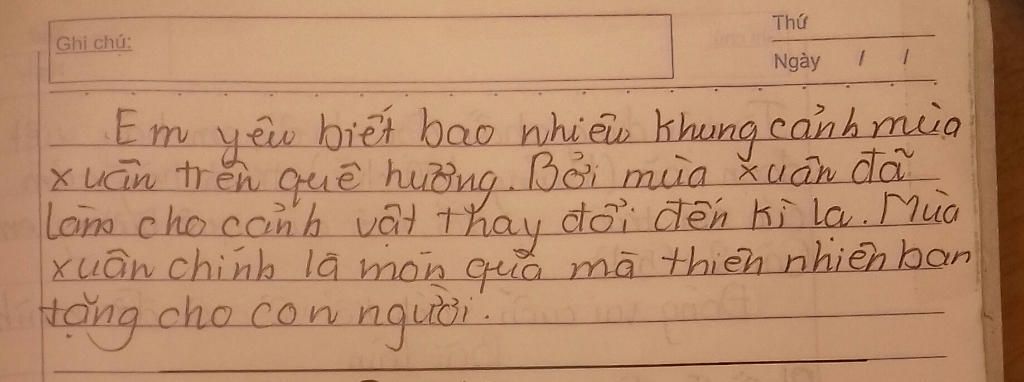 Ghi chú:
Thứ
Ngày / /
Em yêu biết bao nhiêu khung cảnh mùa
xuân trên quê hương. Bởi mùa xuân đã
làm cho cảnh vật thay đổi đến kì lạ. Mùa
xuân chính là món quà mà thiên nhiên ban
tặng cho con người.